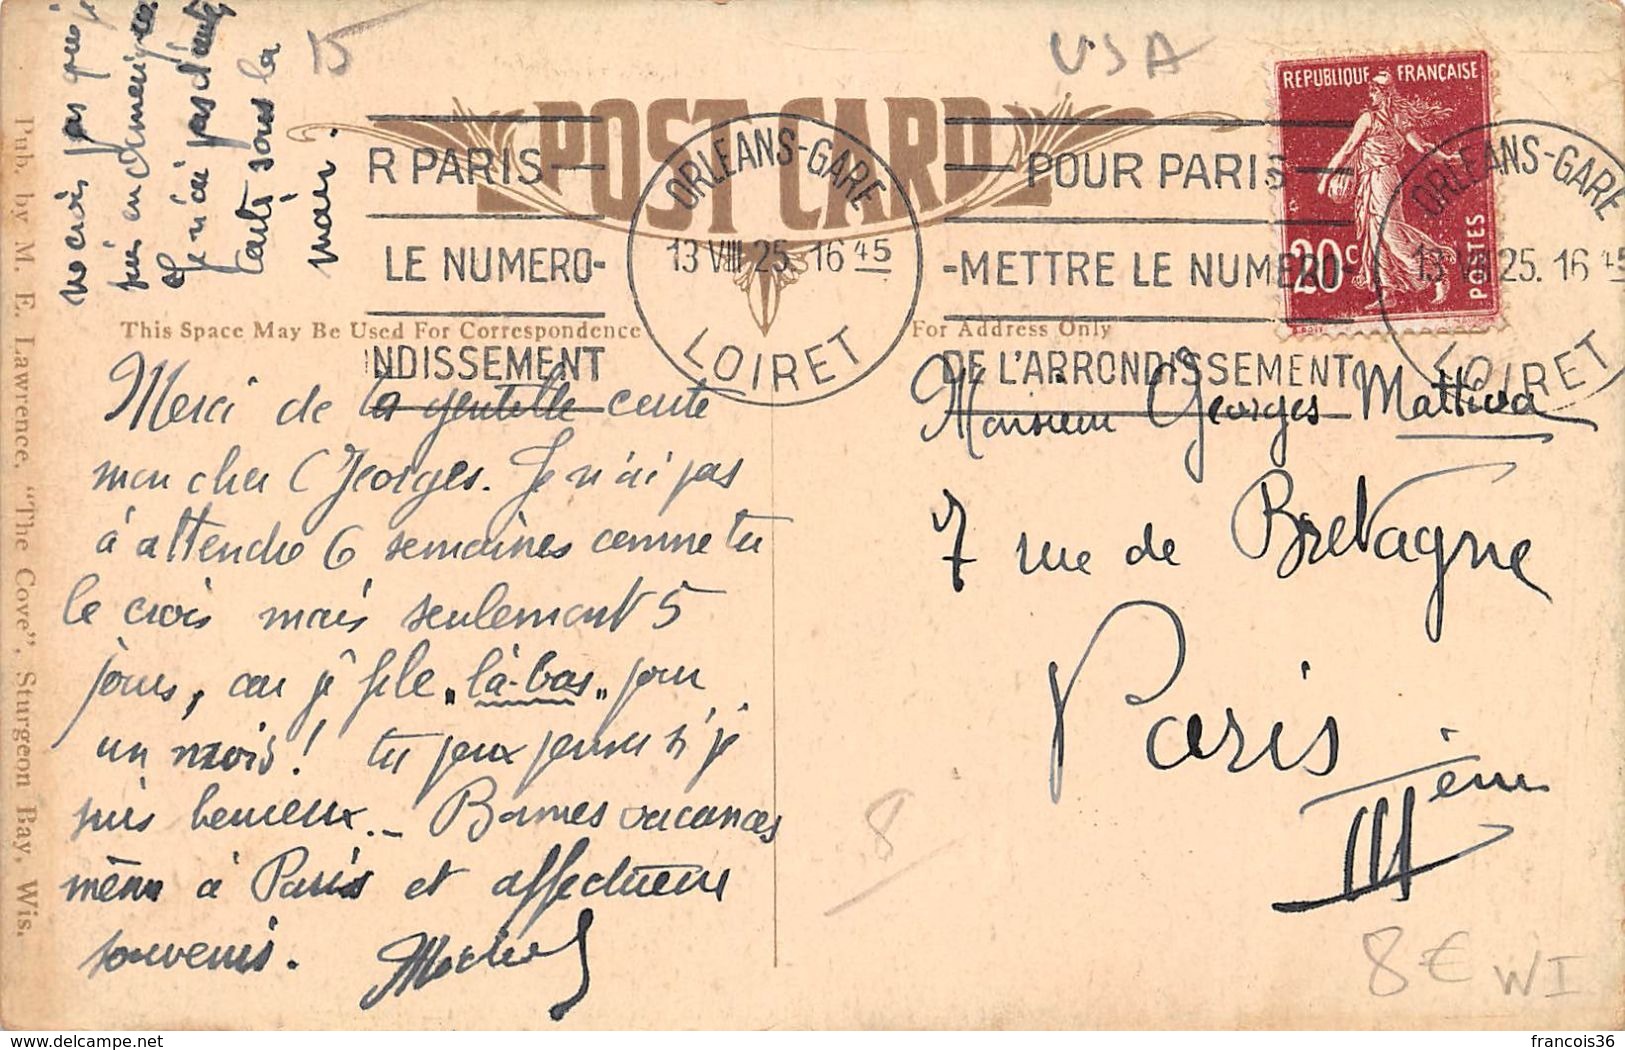 ne crois pas que je
suis en Amérique
et je n'ai pas d'autre
carte sous la
main.
15
USA
POST CARD
R PARIS
LE NUMERO-
NDISSEMENT
ORLEANS-GARE
13 VIII 25 16 45
LOIRET
POUR PARIS
-METTRE LE NUMERO-
DE L'ARRONDISSEMENT
REPUBLIQUE FRANÇAISE
20c
POSTES
ORLEANS-GARE
13 VIII 25. 16 45
LOIRET
This Space May Be Used For Correspondence
For Address Only
Merci de ta gentille carte
mon cher Georges. Je n'ai pas
à attendre 6 semaines comme tu
le crois mais seulement 5
jours, car je file „là-bas„ pour
un mois! tu peux penser si je
suis heureux._ Bonnes vacances
même à Paris et affectueux
souvenirs.
Monsieur Georges Mattiva
7 rue de Bretagne
Paris
IIIème
8
8€ WI
Pub. by M. E. Lawrence, "The Cove", Sturgeon Bay, Wis.
www.delcampe.net
francois36